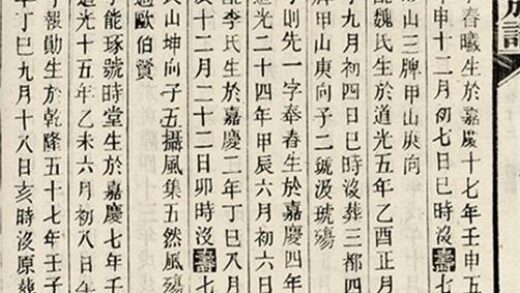 族譜
春曦生於嘉慶十七年壬申五
申十二月初七日巳時沒壽七
山三牌甲山庚向
配魏氏生於道光五年乙酉正月
年九月初四日巳時葬三都四
牌甲山庚向子二琥汲琥殤
則先一字奉春生於嘉慶四年
道光二十四年甲辰六月初六日
配李氏生於嘉慶二年丁巳八月
慶十二月二十二日卯時沒壽七
山坤向子五攝風集五然風殤
適歐伯賢
子能琢號時堂生於嘉慶七年
道光十五年乙未六月初八日午
子報勛生於乾隆五十七年壬子
年丁巳九月十八日亥時沒原葬